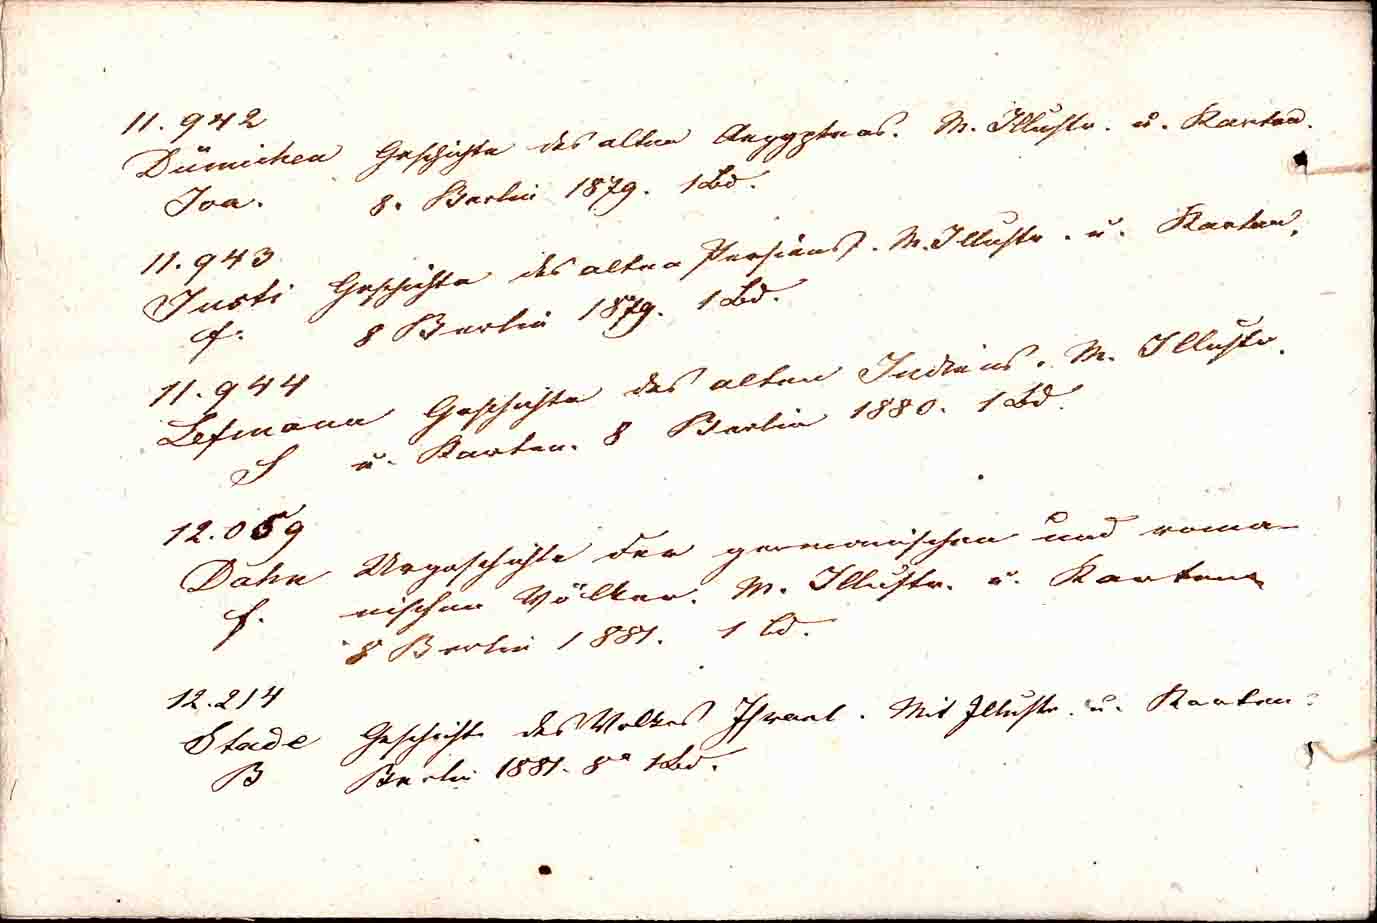 11.942
Dümichen Geschichte des alten Aegyptens. M. Illustr. u. Karten.
Joa. 8. Berlin 1879. 1 Bd.
11.943
Justi Geschichte des alten Persiens. M. Illustr. u. Karten.
f. 8 Berlin 1879. 1 Bd.
11.944
Lefmann Geschichte des alten Indiens. M. Illustr.
S u. Karten. 8 Berlin 1880. 1 Bd.
12.059
Dahn Urgeschichte der germanischen und roma-
f. nischen Völker. M. Illustr. u. Karten
8 Berlin 1881. 1 Bd.
12.214
Stade Geschichte des Volkes Israel. Mit Illustr. u. Karten.
B Berlin 1881. 8° 1 Bd.